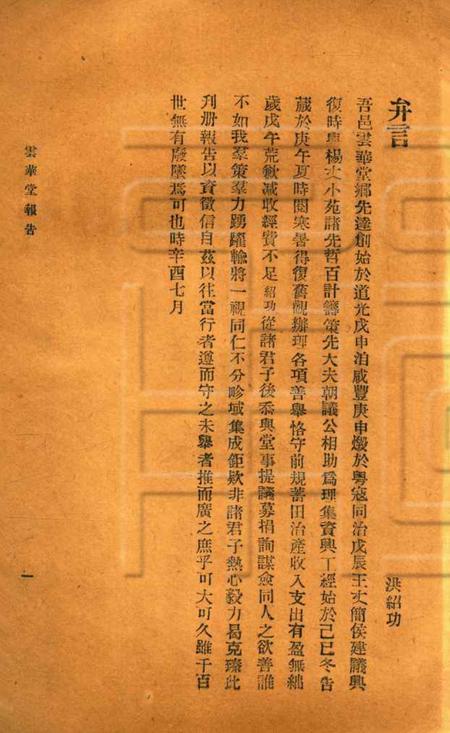 弁言
洪紹功
吾邑雲華堂鄉先達創始於道光戊申洎咸豐庚申燬於粵寇同治戊辰王丈簡侯建議興
復時與楊丈小苑諸先哲百計籌策先大夫朝議公相助爲理集資興工經始於己巳冬告
蕆於庚午夏時閱寒暑得復舊觀辦理各項善舉恪守前規薔田治產收入支出有盈無絀
歲戊午荒歉減收經費不足紹功從諸君子後忝與堂事提議募捐詢謀僉同人之欲善誰
不如我羣策羣力踴躍輸將一視同仁不分畛域集成鉅欵非諸君子熱心毅力曷克臻此
刋册報告以資徵信自茲以往當行者遵而守之未舉者推而廣之庶乎可大可久雖千百
世無有廢墜焉可也時辛酉七月
雲華堂報告
一